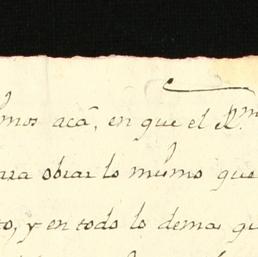 mos acâ, en que el R.^mo
ara obrar lo mismo que
to, y en todo lo demas qu